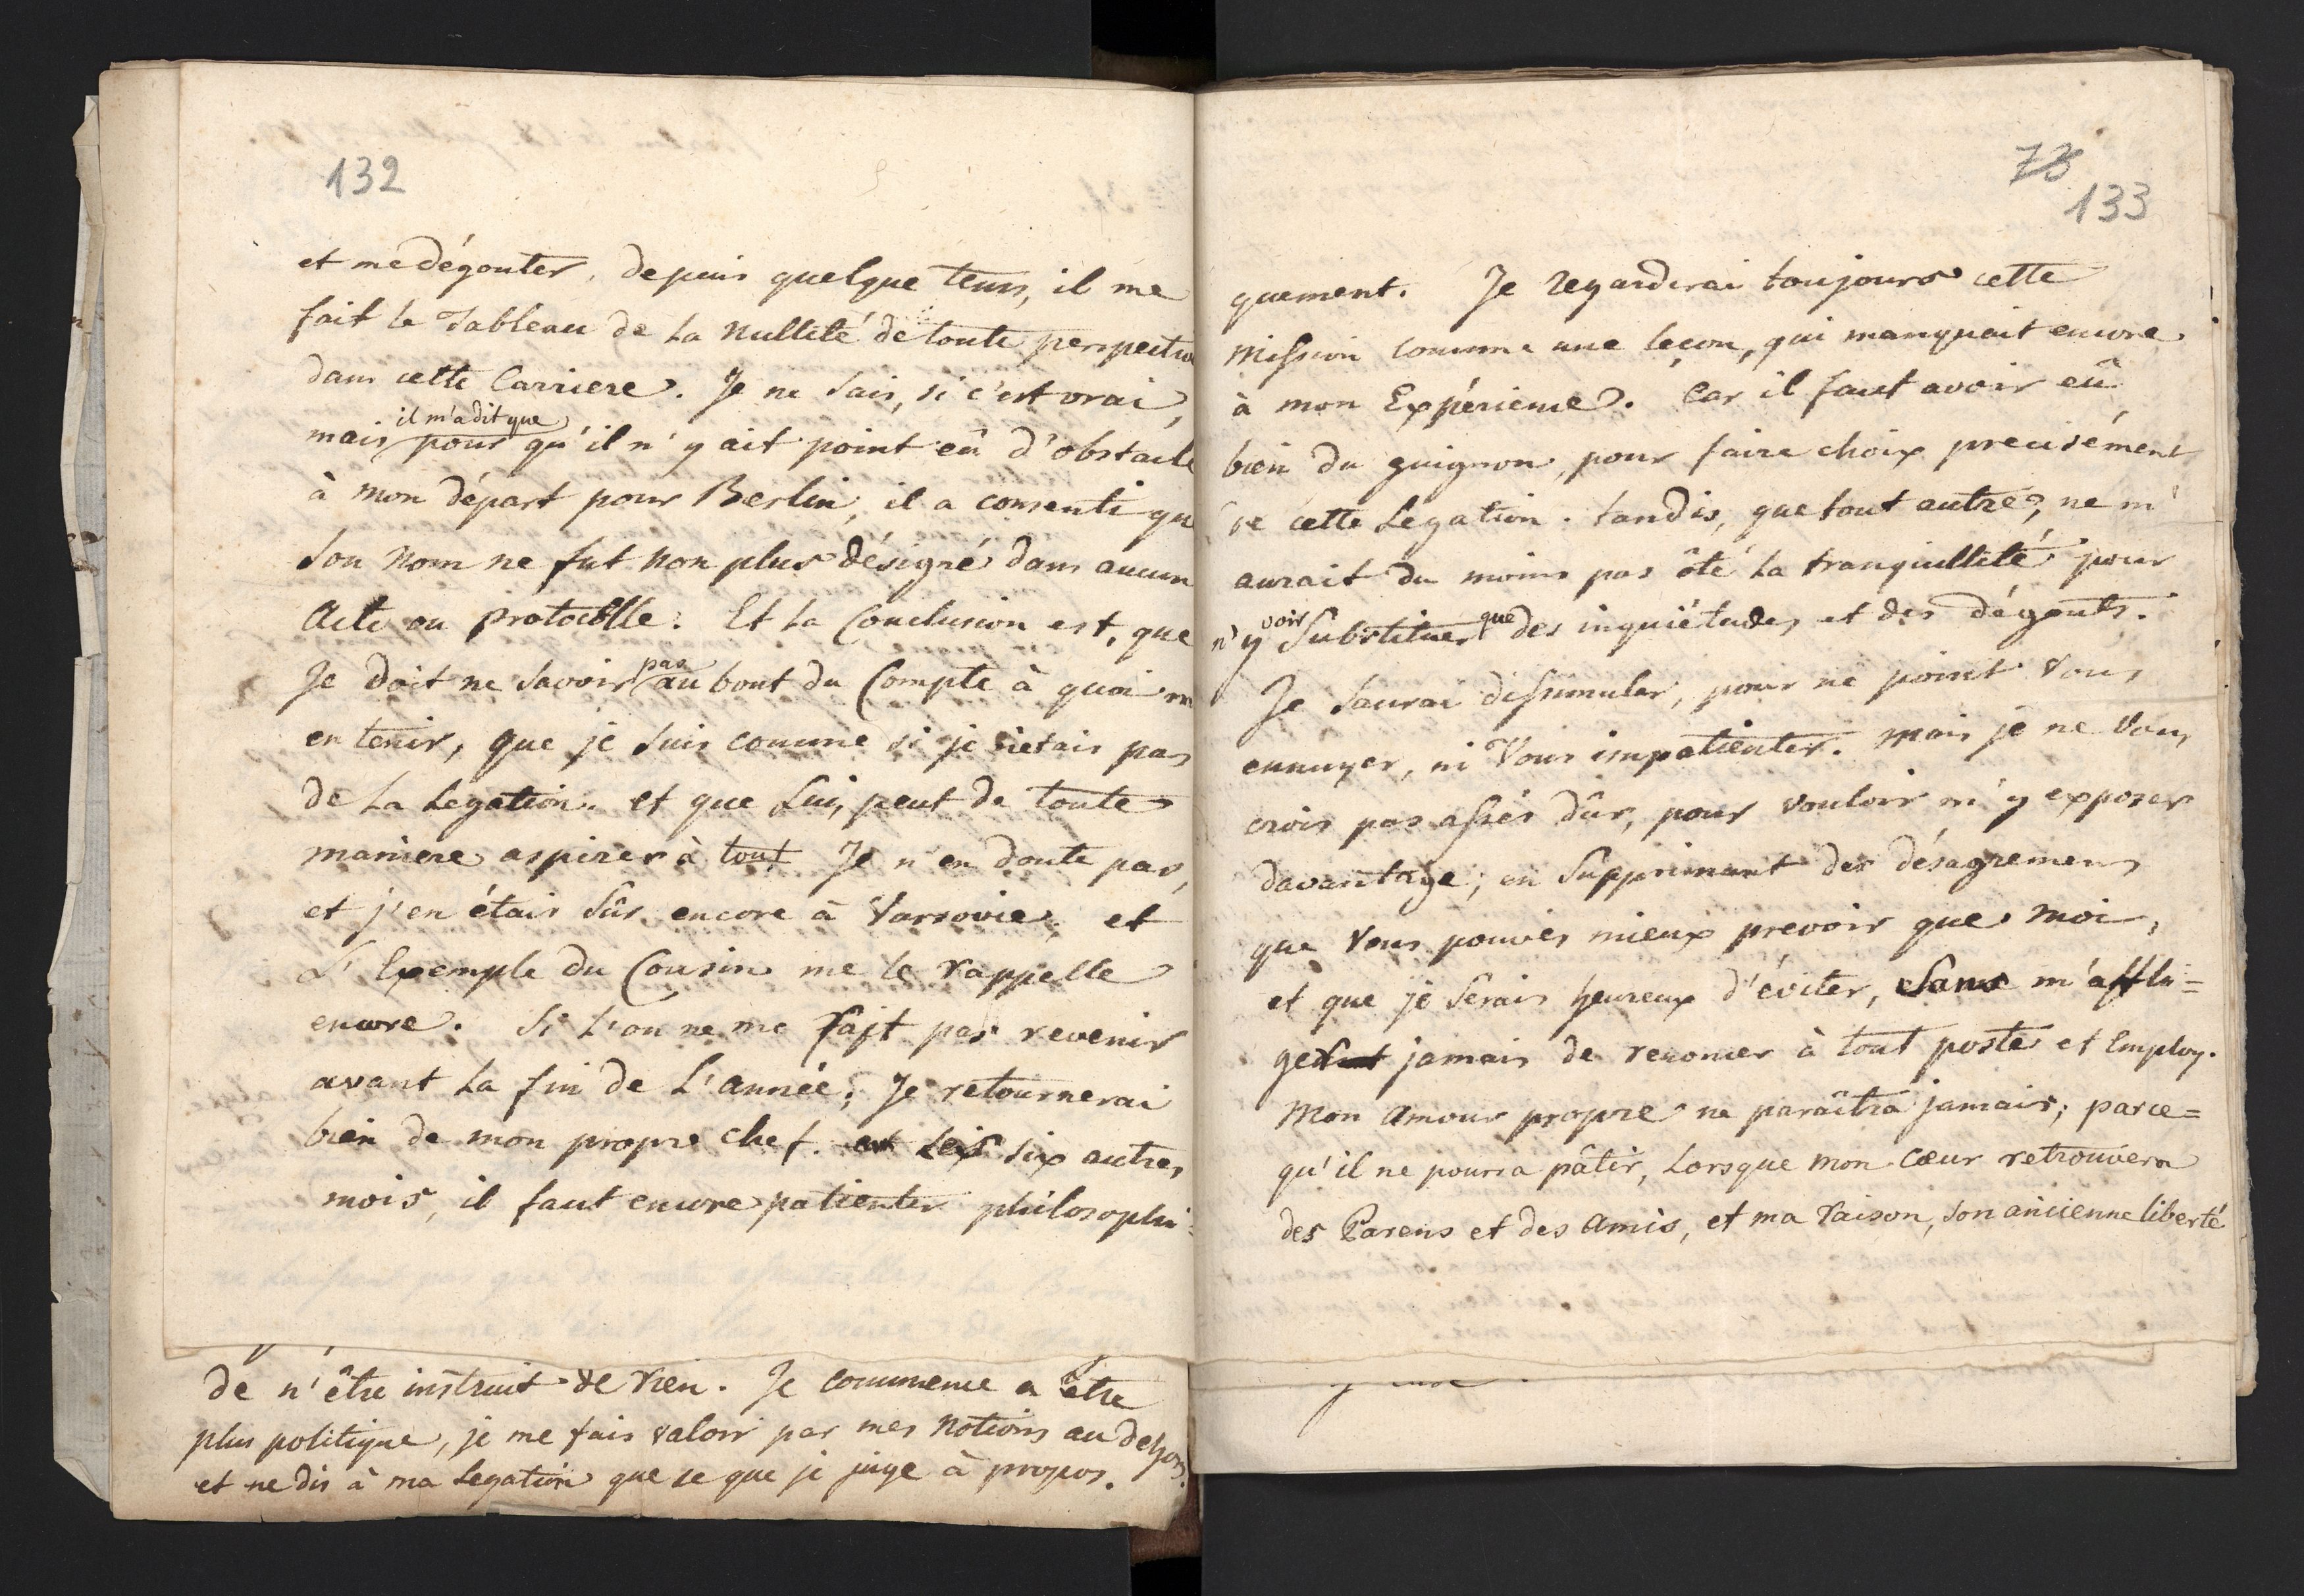 132
et me dégouter, depuis quelque tems, il me
fait le Tableau de la Nullité de toute perspective
dans cette Carriere. Je ne sais, si c'est vrai,
il m'a dit que
mais pour qu'il n'y ait point eû d'obstacle
à mon départ pour Berlin, il a consenti que
son Nom ne fut non plus désigné dans aucun
Acte ou Protocolle. Et la Conclusion est, que
pas
Je doit ne savoir au bout du Compte à quoi m
en tenir, que je suis comme si je n'etais pas
de la Legation. et que Lui, peut de toute
maniere aspirer à tout. Je n'en doute pas,
et j'en étais sûr encore à Varsovie, et
L'Exemple du Cousin me le rappelle
encore. Si l'on ne me fait pas revenir
avant la fin de L'année, Je retournerai
bien de mon propre chef. Les six autres
mois, il faut encore patienter philosophi=
de n'être instruit de rien. Je commence a être
plus politique, je me fais valoir par mes Notions au dehors.
et ne dis à ma Legation que ce que je juge à propos.
73
133
quement. Je regarderai toujours cette
Mission comme une leçon, qui manquait encore
à mon Expérience. Car il faut avoir eû
bien du guignon, pour faire choix precisément
de cette Légation. tandis, que tout autre, ne m'
aurait du moins pas ôté la tranquillité pour
voir que
n'y Substituer des inquiétudes et des dégouts.
Je saurai dissimuler, pour ne point Vous
ennuyer, ni Vous impatienter. Mais je ne Vous
crois pas assés dûr, pour vouloir m'y exposer
davantage, en Supprimant des désagremens
que Vous pouvés mieux prevoir que Moi,
et que je serais heureux d'éviter, Sans m'affli=
ger jamais de renoncer à tout poste et Employ.
Mon Amour propre ne paraîtra jamais; parce=
qu'il ne pourra pâtir, Lorsque mon Cœur retrouvera
des Parens et des Amis, et ma raison, son ancienne liberté